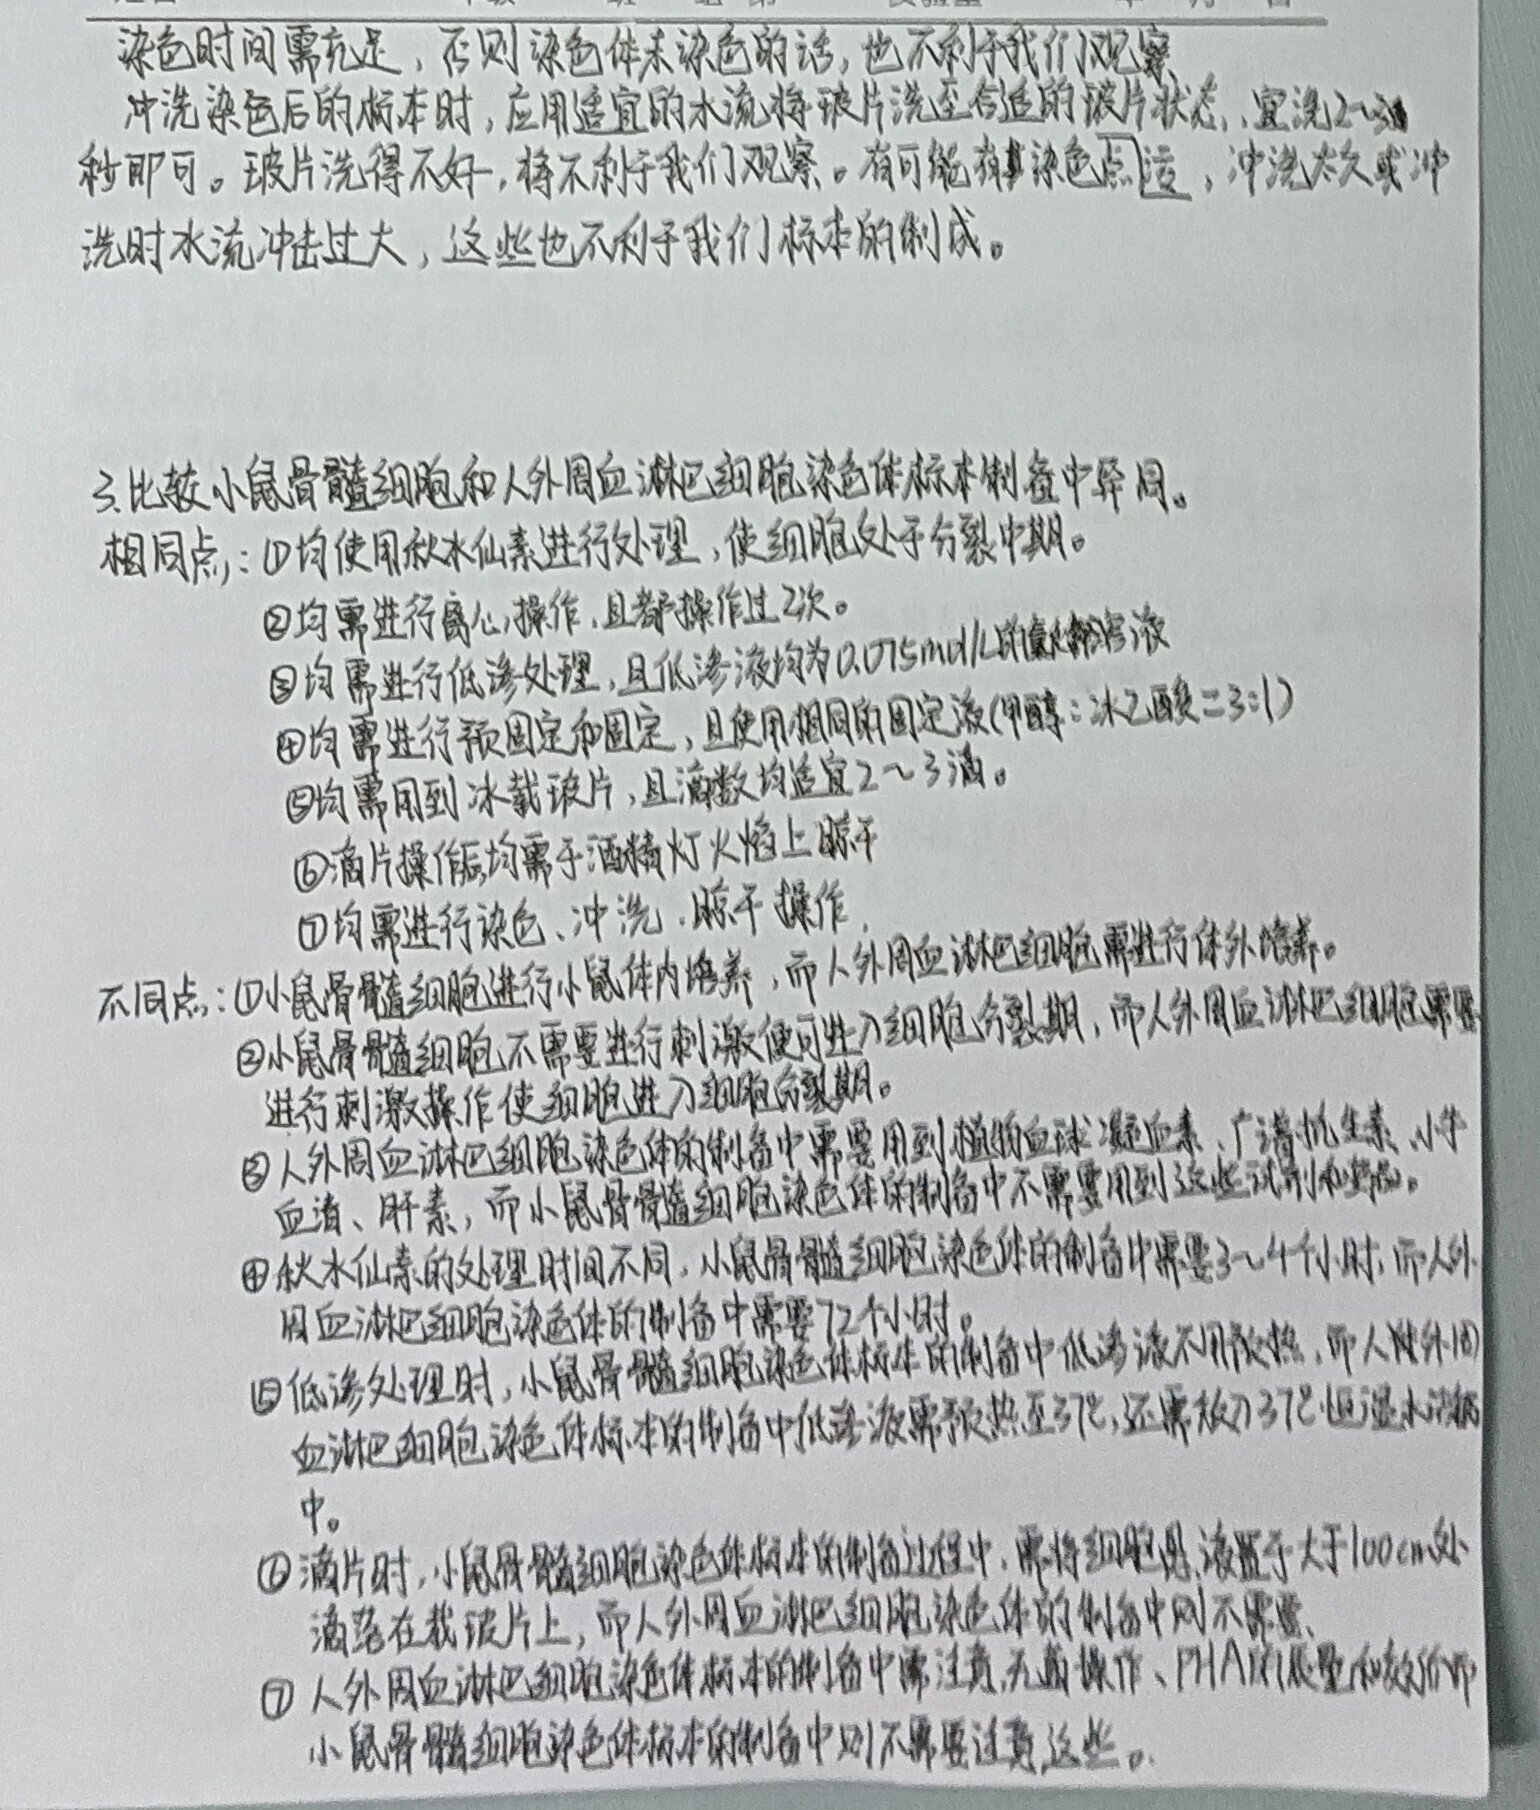 染色时间需充足，否则染色体未染色的话，也不利于我们观察
冲洗染色后的标本时，应用适宜的水流将玻片洗至合适的玻片状态，宜洗2~3
秒即可。玻片洗得不好，将不利于我们观察。有可能有染色，冲洗太久或冲
洗时水流冲击过大，这些也不利于我们标本的制成。
3.比较小鼠骨髓细胞和人外周血淋巴细胞染色体标本制备中异同。
相同点：①均使用秋水仙素进行处理，使细胞处于分裂中期。
②均需进行离心操作，且都操作过2次。
③均需进行低渗处理，且低渗液均为0.075mol/L的溶液
④均需进行预固定和固定，且使用相同的固定液（甲醇：冰乙酸=3:1）
⑤均需用到冰载玻片，且滴数均适宜2~3滴。
⑥滴片操作后均需于酒精灯火焰上晾干
⑦均需进行染色、冲洗、晾干操作，
不同点：①小鼠骨髓细胞进行小鼠体内培养，而人外周血淋巴细胞需进行体外培养。
②小鼠骨髓细胞不需要进行刺激便可进入细胞分裂期，而人外周血淋巴细胞需要
进行刺激操作使细胞进入细胞分裂期。
③人外周血淋巴细胞染色体的制备中需要用到植物血球凝血素、广谱抗生素、小牛
血清、肝素，而小鼠骨髓细胞染色体的制备中不需要用到这些试剂和药品。
④秋水仙素的处理时间不同，小鼠骨髓细胞染色体的制备中需要3~4个小时，而人外
周血淋巴细胞染色体的制备中需要72个小时。
⑤低渗处理时，小鼠骨髓细胞染色体标本的制备中低渗液不用预热，而人外周
血淋巴细胞染色体标本的制备中低渗液需预热至37℃，还需放入37℃恒温水浴锅
中。
⑥滴片时，小鼠骨髓细胞染色体标本的制备过程中，需将细胞悬液置于大于100cm处
滴落在载玻片上，而人外周血淋巴细胞染色体的制备中则不需要、
⑦人外周血淋巴细胞染色体标本的制备中需注意无菌操作、PHA的质量和效价而
小鼠骨髓细胞染色体标本的制备中则不需要注意这些。